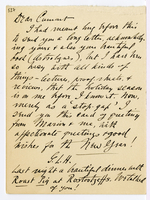 Dear Cumont
I had meant long before this
to send you a long letter acknowledg-
ing yours & also your beautiful
book (Astrologues), but I have been
so busy with all kinds of
things — lecture, proof-sheets, &
reviews, that the holiday season
is on us before I knew it. Now,
merely as a "stop gap" I
send you this card of greeting
from Marion & me, with
affectionate greetings & good
wishes for the New Year!
G.L.H.
Last night a beautiful dinner with
Roast Pig at Rostovtzeffs. We talked
of you!